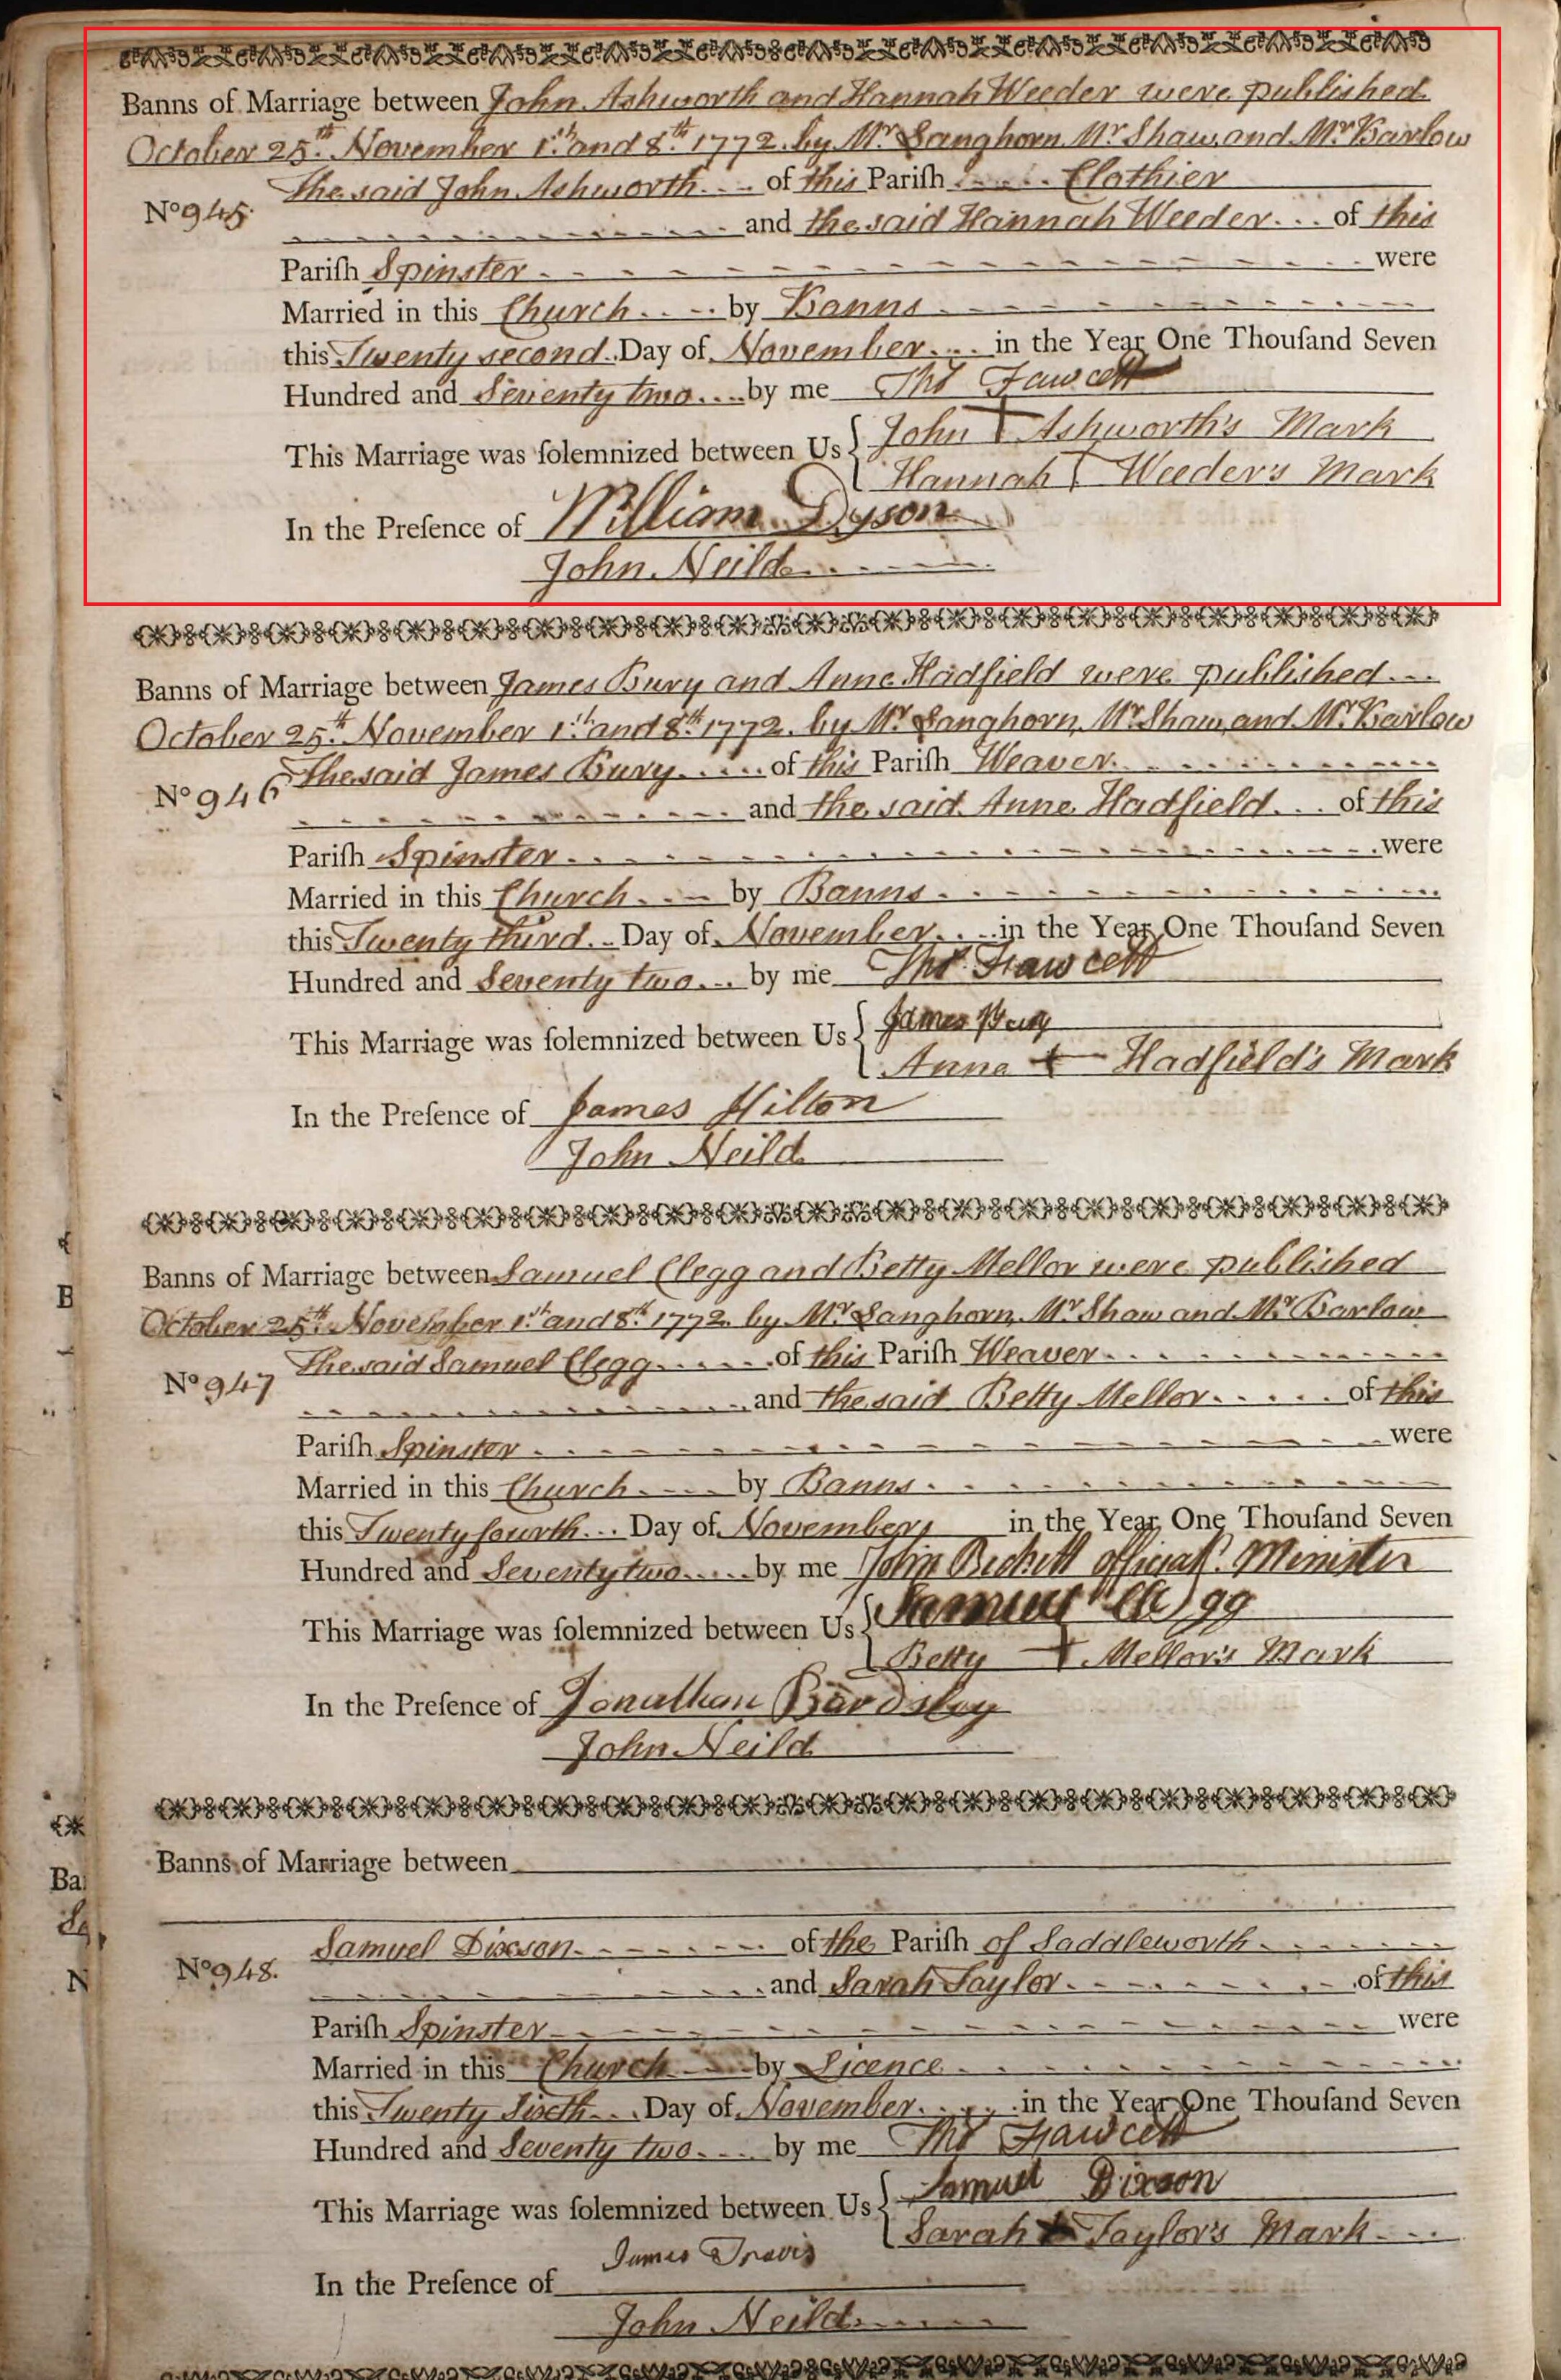 Banns of Marriage between John Ashworth and Hannah Weeder were published
October 25th. November 1st. and 8th. 1772. by Mr. Langhorn, Mr. Shaw, and Mr. Barlow
The said John Ashworth of this Pariſh Clothier
No 945. and the said Hannah Weeder of this
Pariſh Spinster were
Married in this Church by Banns
this Twenty second Day of November in the Year One Thouſand Seven
Hundred and Seventy two by me Thos Fawcett
This Marriage was ſolemnized between Us { John + Ashworth's Mark
Hannah Weeder's Mark
In the Preſence of William Dyson
John Neild
Banns of Marriage between James Bury and Anne Hadfield were published
October 25th. November 1st. and 8th. 1772. by Mr. Langhorn, Mr. Shaw, and Mr. Barlow
The said James Bury of this Pariſh Weaver
No 946 and the said Anne Hadfield of this
Pariſh Spinster were
Married in this Church by Banns
this Twenty third Day of November in the Year One Thouſand Seven
Hundred and Seventy two by me Thos Fawcett
This Marriage was ſolemnized between Us { James Bury
Anne + Hadfield's Mark
In the Preſence of James Hilton
John Neild
Banns of Marriage between Samuel Clegg and Betty Mellor were published
October 25th. November 1st. and 8th. 1772 by Mr. Langhorn, Mr. Shaw and Mr. Barlow
The said Samuel Clegg of this Pariſh Weaver
No 947 and the said Betty Mellor of this
Pariſh Spinster were
Married in this Church by Banns
this Twenty fourth Day of November in the Year One Thouſand Seven
Hundred and Seventy two by me John Beckett Minister
This Marriage was ſolemnized between Us { Samuel Clegg
Betty + Mellor's Mark
In the Preſence of Jonathan Bardsley
John Neild
Banns of Marriage between
Samuel Dixson of the Pariſh of Saddleworth
No 948. and Sarah Taylor of this
Pariſh Spinster were
Married in this Church by Licence
this Twenty Sixth Day of November in the Year One Thouſand Seven
Hundred and Seventy two by me Thos Fawcett
This Marriage was ſolemnized between Us { Samuel Dixson
Sarah + Taylor's Mark
James Travis
In the Preſence of
John Neild